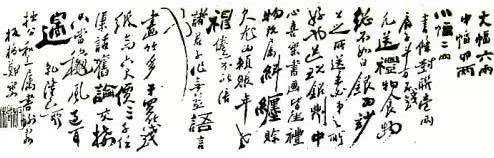 大幅六兩
中幅四兩
小幅二兩
書條對聯壹兩
扇子斗方五錢
凡送禮物食物
總不如白銀為妙
公之所送未必弟之所
好也送現銀則中
心喜樂書画皆佳禮
物既属糾纏賒
欠尤恐賴賬年老
神倦不能陪
諸君子作無益語言
也
畫竹多于買竹錢
紙高六尺價三千任
渠話舊論交接
只當秋風過耳
邊 乾隆己卯
拙公和上属書謝客
板橋鄭燮